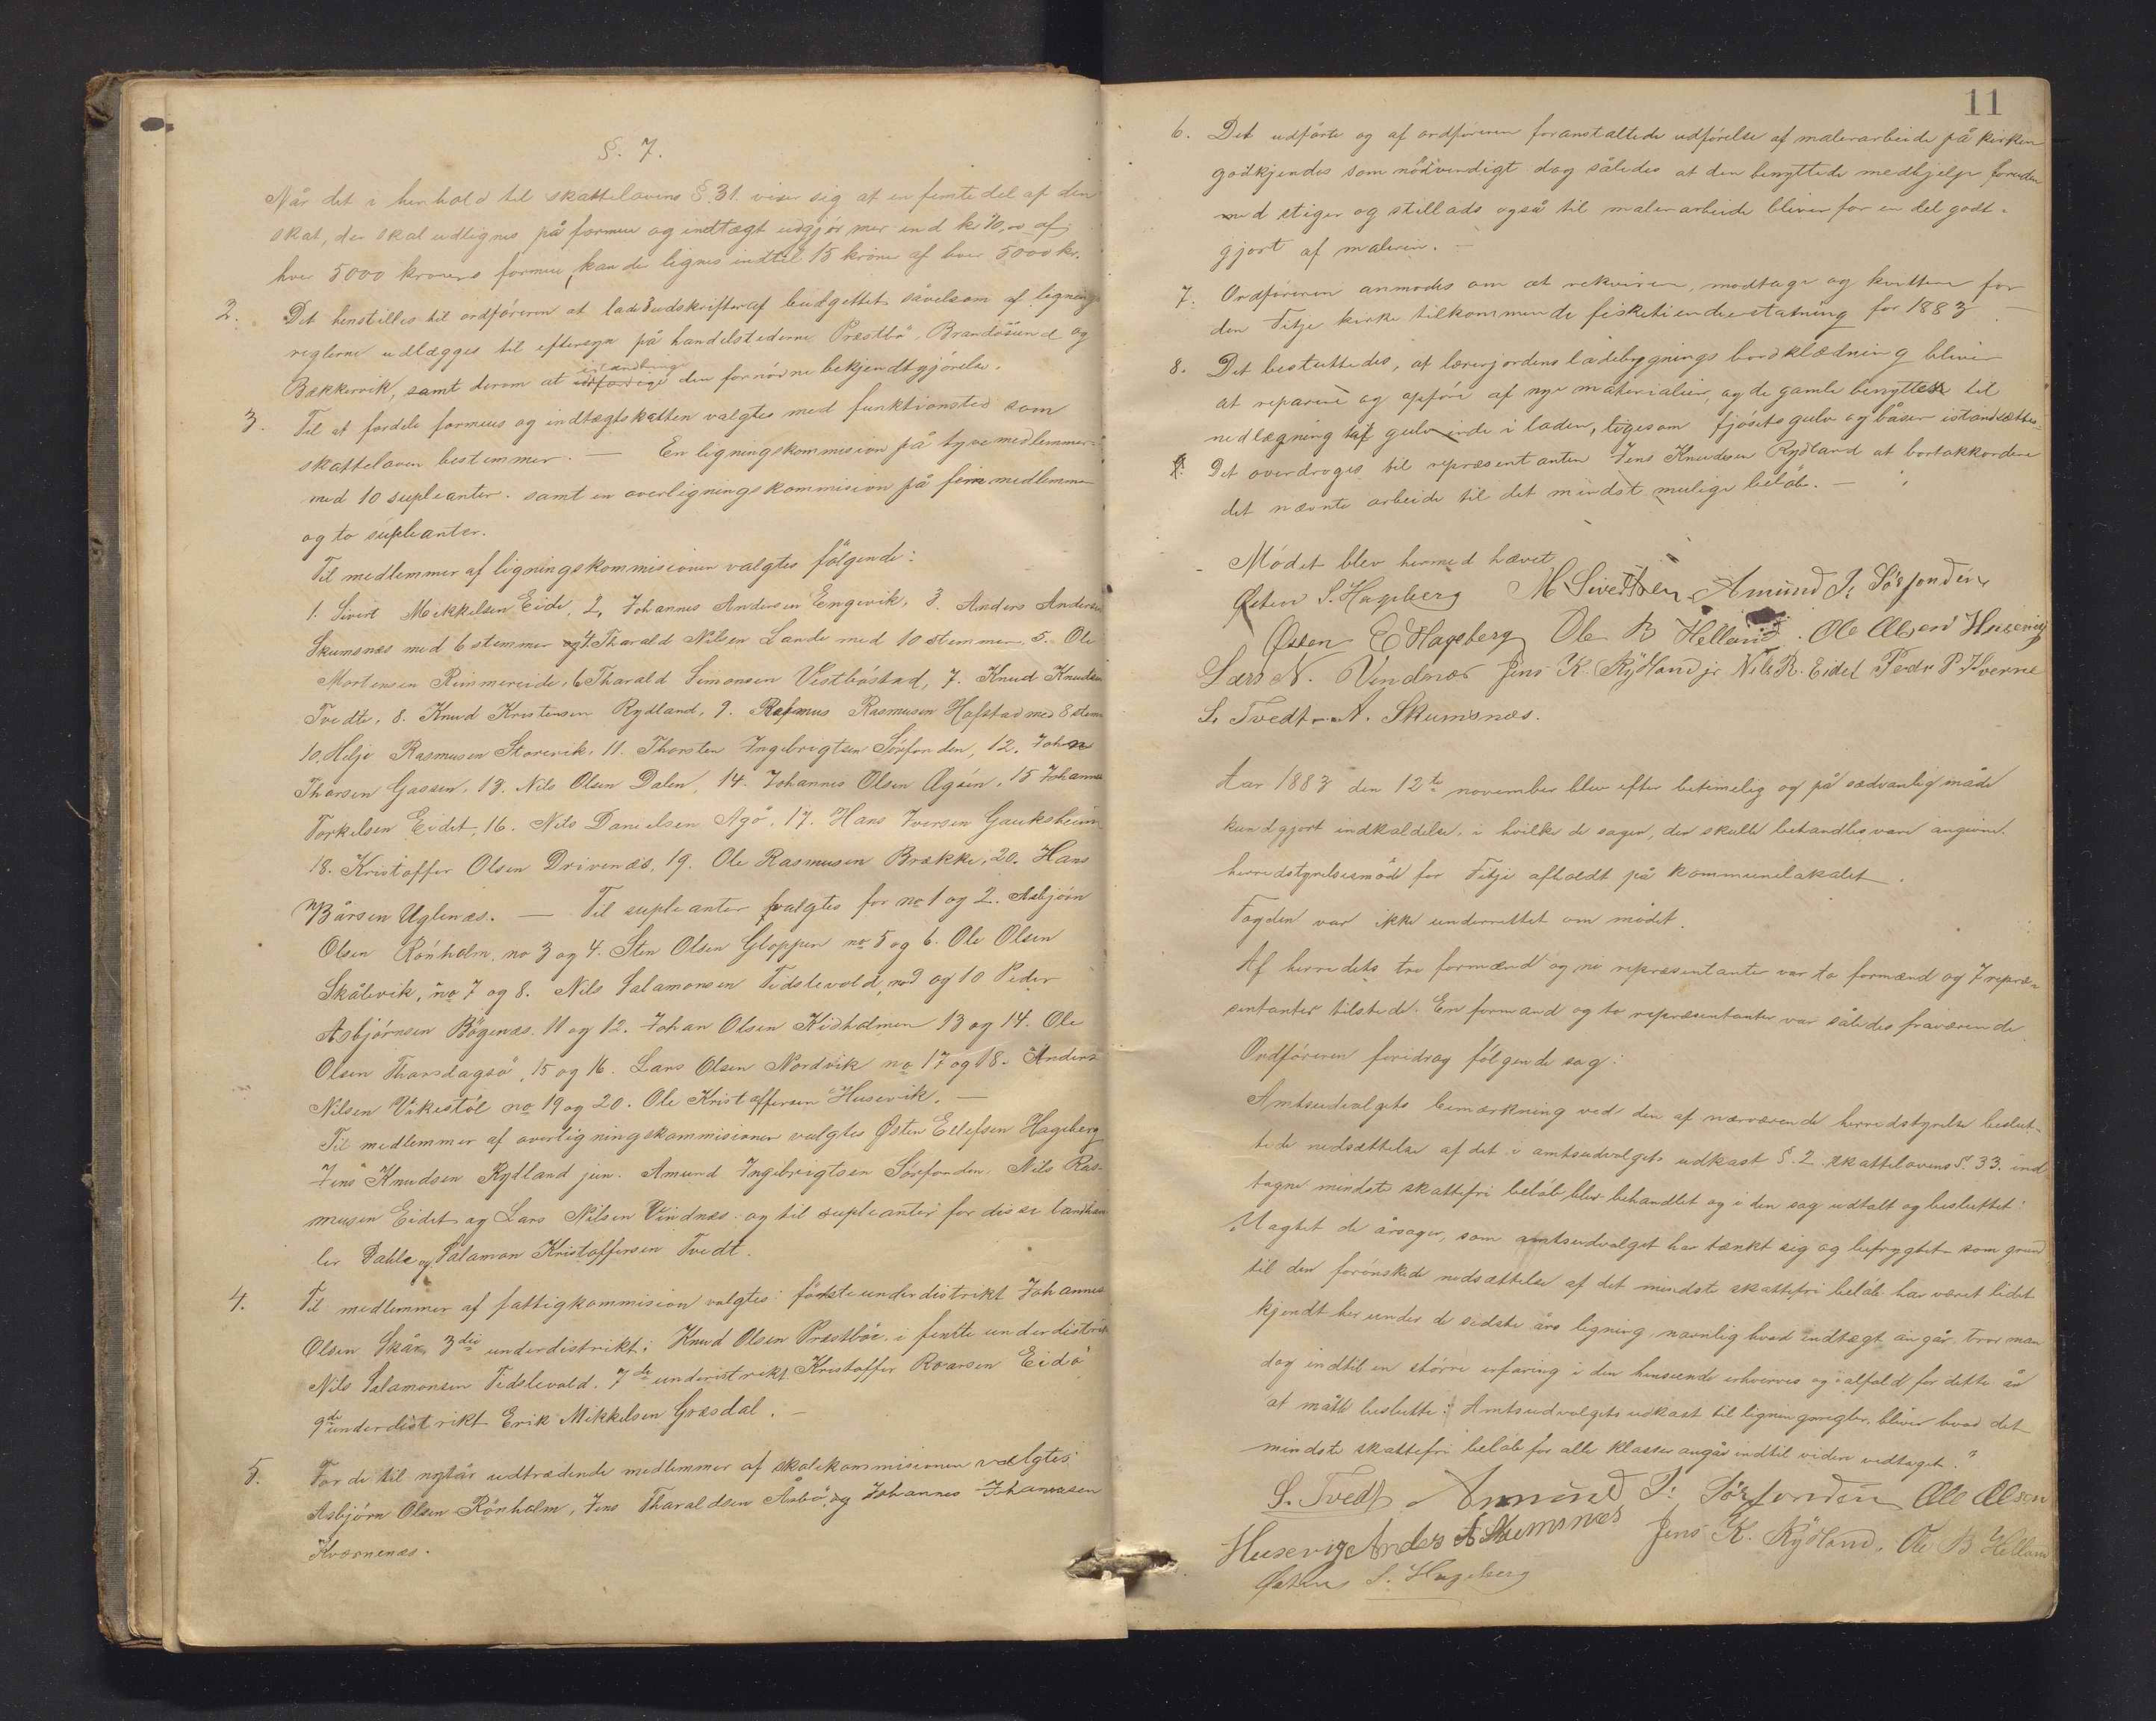 §. 7.
Når det i henhold til skattelovens §. 31. viser sig at en femtedel af den
skat, der skal udlignes på formue og indtægt udgjør mer end kr 10,00 af
hver 5000 kroners formue, kan der lignes indtil 15 kroner af hver 5000 kr.
2. Det henstilles til ordføreren at lade 3 udskrifter af budgettet såvelsom af lignings
reglerne udlægges til eftersyn på handelstederne Præstbø, Brandøsund og
Bækkervik, samt derom at den fornødne bekjendtgjørelse.
3. Til at fordele formues og indtægtskatten valgtes med funktionstid som
skatteloven bestemmer. — En ligningskommision på tyve medlemmer
med 10 supleanter. samt en overligningskommision på fem medlemmer
og to supleanter.
Til medlemmer af ligningskommisionen valgtes følgende:
1. Sivert Mikkelsen Eide, 2, Johannes Andersen Engevik, 3. Anders Andersen
Skumsnæs med 6 stemmer og 4. Tharald Nilsen Lande med 10 stemmer, 5. Ole
Mortensen Rimmereide, 6 Tharald Simonsen Vestbøstad, 7. Knud Knudsen
Tvedte, 8. Knud Kristensen Rydland, 9. Rasmus Rasmusen Hofstad med 8 stem
10. Helje Rasmusen Storevik, 11. Thorsten Ingebrigtsen Sørfonden, 12. Johan
Thorsen Gaasen, 13. Nils Olsen Dalen, 14. Johannes Olsen Ågøen, 15 Johannes
Torkelsen Eidet, 16. Nils Danielsen Agø, 17. Hans Iversen Gauksheim
18. Kristoffer Olsen Drivenæs, 19. Ole Rasmusen Brække, 20. Hans
Bårsen Uglenæs. — Til supleanter valgtes for no 1 og 2. Asbjørn
Olsen Rønholm, no 3 og 4. Sten Olsen Gloppen no 5 og 6. Ole Olsen
Skålevik, no 7 og 8. Nils Salamonsen Tidslevold, no 9 og 10 Peder
Asbjørnsen Bøgenæs. 11 og 12. Johan Olsen Kidholmen 13 og 14. Ole
Olsen Thorsdagsø, 15 og 16. Lars Olsen Nordvik no 17 og 18. Anders
Nilsen Vikestøl no 19 og 20. Ole Kristoffersen Husevik. —
Til medlemmer af overligningskommisionen valgtes Østen Ellefsen Hageberg
Jens Knudsen Rydland jun. Amund Ingebrigtsen Sørfonden, Nils Ras-
musen Eidet og Lars Nilsen Vindnæs: og til supleanter for disse landhan
ler Dahle og Salamon Kristoffersen Tvedt.
4. Til medlemmer af fattigkommision valgtes: første underdistrikt Johannes
Olsen Skår, 3die underdistrikt: Knud Olsen Præstbø, i femte underdistrikt
Nils Salamonsen Tidslevold. 7de underistrikt Kristoffer Roarsen Eidø
9de underdistrikt Erik Mikkelsen Græsdal. —
5. For de til nytår udtrædende medlemmer af skolekommisionen valgtes:
Asbjørn Olsen Rönholm, Jens Tharaldsen Årbø, og Johannes Johannesen
Kværnenæs.
11
6. Det udførte og af ordføreren foranstaltede udførelse af malerarbeide på kirken
godkjendes som nødvendigt dog således at den benyttede medhjelp foruden
med stiger og stillads også til malerarbeide bliver for en del godt-
gjort af maleren. —
7. Ordføreren anmodes om at rekvirere, modtage og kvittere for
den Fitje kirke tilkommende fisketiendeerstatning for 1883 —
8. Det besluttedes, at lærerjordens ladebygnings bordklædning bliver
at reparere og opføre af nye materialier, og de gamle benyttes til
nedlægning af gulv inde i laden, ligesom fjøsets gulv og båser istandsættes
9. Det overdroges til repræsentanten Jens Knudsen Rydland at bortakkordere
det nævnte arbeide til det mindst mulige beløb. —
Mødet blev hermed hævet
Østen S. Hageberg M Sivertsen Amund I. Sørfonden
Østen E Hageberg Ole B Helland. Ole Olsen Husevig
Lars N. Vindnæs Jens K. Rydland jr Nils R. Eidet Peder P. Hverne
S. Tvedt A. Skumsnæs.
Aar 1883 den 12te november blev efter betimelig og på sædvanlig måde
kundgjort indkaldelse, i hvilke de sager, der skulle behandles vare angivne.
herredstyrelsesmøde for Fitje afholdt på kommunelokalet.
Fogden var ikke underrettet om mødet.
Af herredets tre formænd og ni repræsentanter var to formænd og 7 repræ-
sentanter tilstede. En formand og to repræsentanter var således fraværende
Ordføreren foredrog følgende sag:
Amtsudvalgets bemærkning ved den af nærværende herredstyrelse beslut-
tede nedsættelse af det i amtsudvalgets udkast §. 2 skattelovens §. 33. ind
tagne mindste skattefri beløb blev behandlet og i den sag udtalt og besluttet:
"Uagtet de årsager, som amtsudvalget har tænkt sig og befrygtet som grund
til den forønskede nedsættelse af det mindste skattefri beløb har været lidet
kjendt her under de sidste års ligning, navnlig hvad indtægt angår, tror man
dog indtil en større erfaring i den henseende erhverves og ialfald for dette år
at måtte beslutte: Amtsudvalgets udkast til ligningsregler, bliver hvad det
mindste skattefri beløb for alle klasser angår indtil videre vedtaget."
S. Tvedt Amund I. Sørfonden Ole Olsen
Husevig Anders A Skumsnæs Jens K. Rydland, Ole B Helland
Østen S. Hageberg